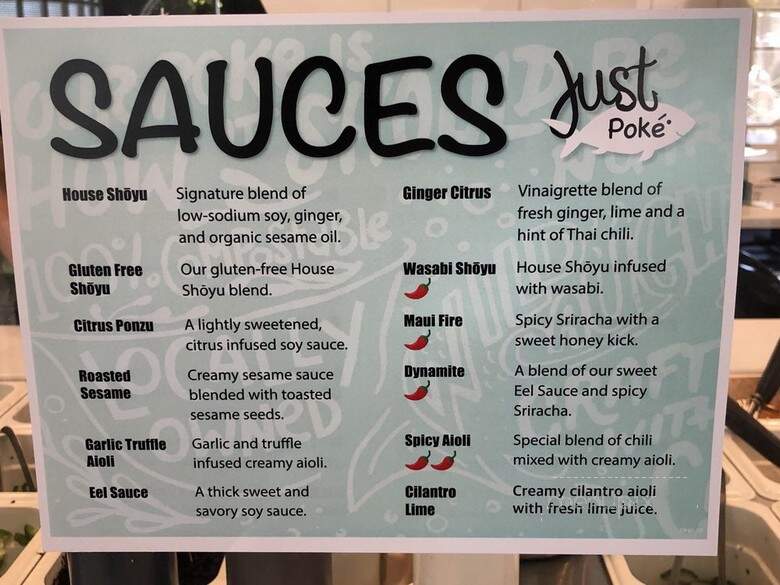 SAUCES
Just
Poké
House Shōyu
Signature blend of
low-sodium soy, ginger,
and organic sesame oil.
Gluten Free
Shōyu
Our gluten-free House
Shōyu blend.
Citrus Ponzu
A lightly sweetened,
citrus infused soy sauce.
Roasted
Sesame
Creamy sesame sauce
blended with toasted
sesame seeds.
Garlic Truffle
Aioli
Garlic and truffle
infused creamy aioli.
Eel Sauce
A thick sweet and
savory soy sauce.
Ginger Citrus
Vinaigrette blend of
fresh ginger, lime and a
hint of Thai chili.
Wasabi Shōyu
House Shōyu infused
with wasabi.
Maui Fire
Spicy Sriracha with a
sweet honey kick.
Dynamite
A blend of our sweet
Eel Sauce and spicy
Sriracha.
Spicy Aioli
Special blend of chili
mixed with creamy aioli.
Cilantro
Lime
Creamy cilantro aioli
with fresh lime juice.
100%
LOCALLY
OWNED